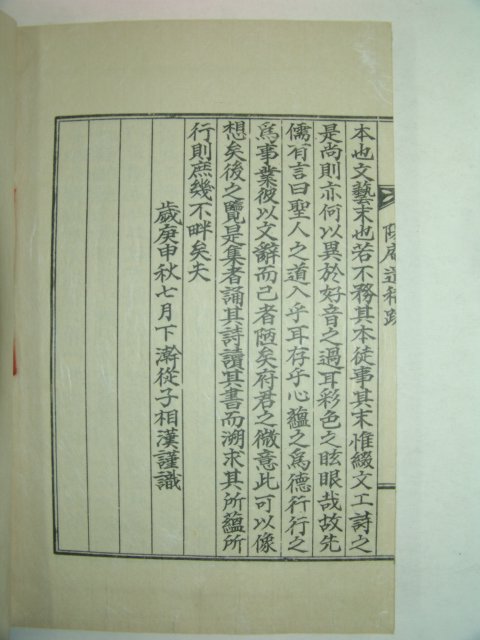 陋庵遺稿跋
本也文藝末也若不務其本徒事其末惟綴文工詩之
是尚則亦何以異於好音之過耳彩色之眩眼哉故先
儒有言曰聖人之道入乎耳存乎心蘊之爲德行行之
爲事業彼以文辭而已者陋矣府君之微意此可以像
想矣後之覽是集者誦其詩讀其書而溯求其所蘊所
行則庶幾不畔矣夫
歲庚申秋七月下澣從子相漢謹識